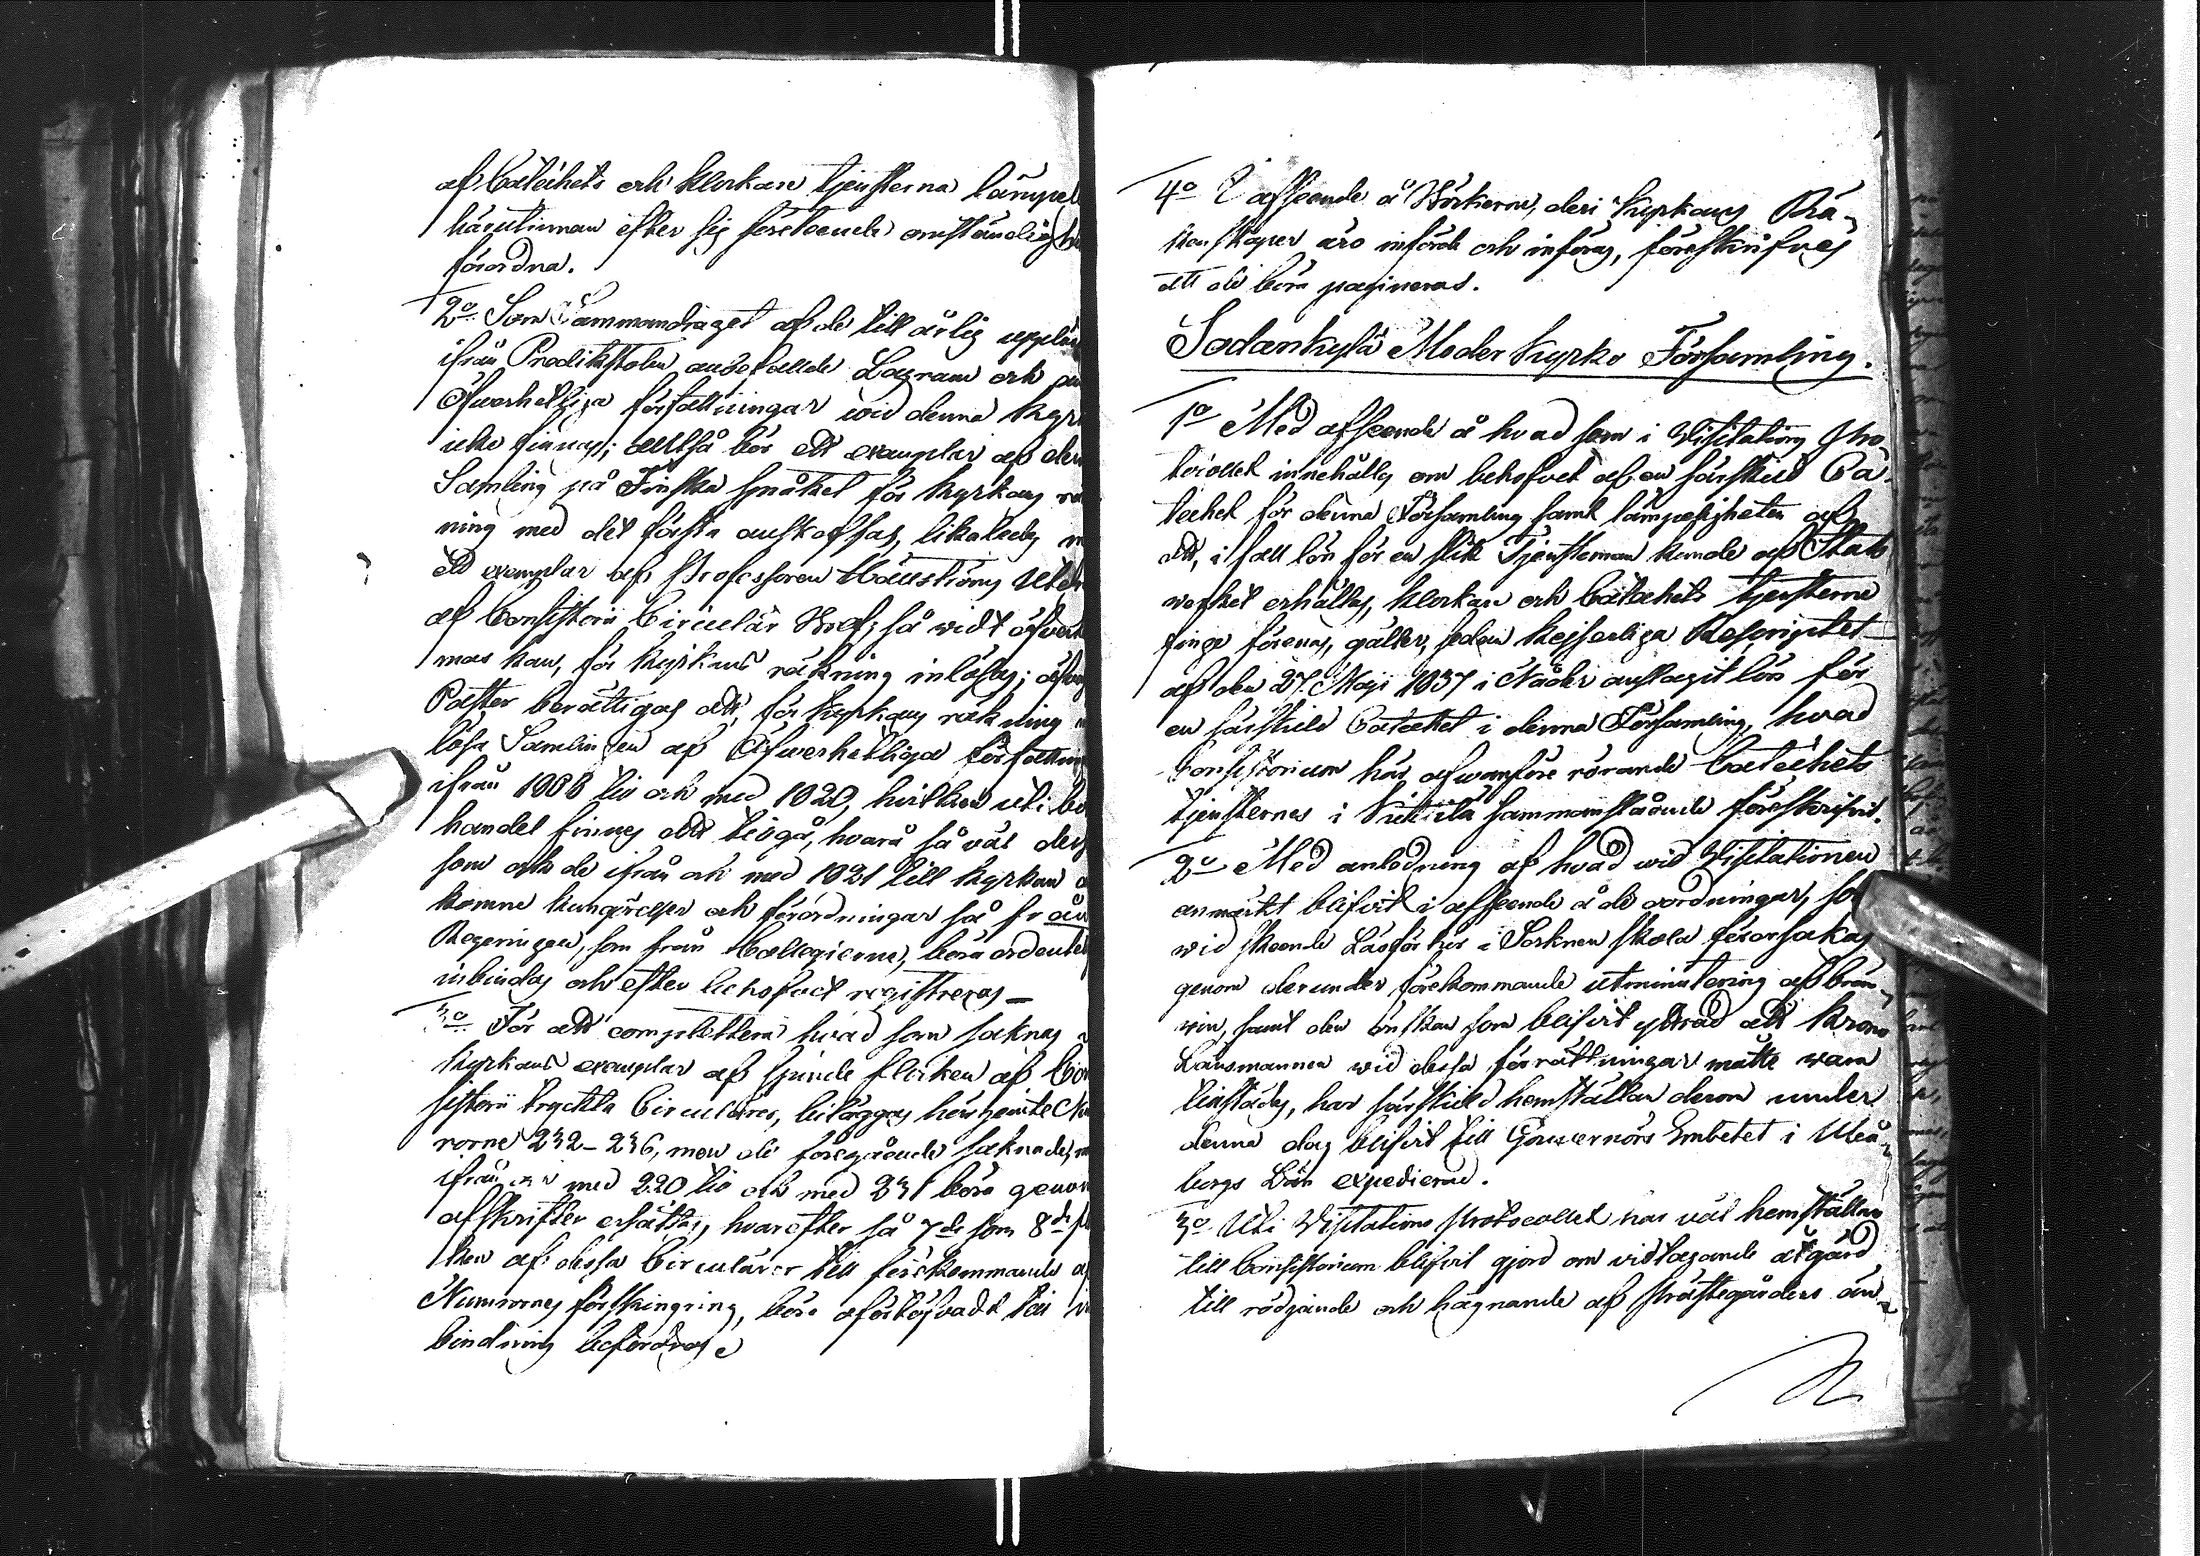 af Catechets och Klockare tjensterna lämpel
härutinnan efter sig företeende omständighe
förordna.
2o Som Sammandraget af de till årlig upplä
ifrån Predikstolen anbefallde Lagrum och
Öfwerhetliga författningar wid denna Kyr
icke finnas; alltså bör ett exemplar af den
Samling på Finska språket för kyrkans rä
ning med det första anskaffas, likaledes
ett exemplar af Professoren
af Consistorii Circulär Bref, så widt öfver
mas kan, för kyrkans räkning inlösas; äfven
Pastor berättigas att, för kyrkans räkning
lösa Samlingen af Öfwerhetliga författnin
ifrån 1808 till och med 1820, hvilken uti bo
handel finnes att tillgå, hvarå så väl dess
som ock de ifrån och med 1821 till kyrkan
komne kungörelser och förordningar så från
Regeringen, som från Collegierne, böra ordentel
inbindas och efter behofvet registreras –
3o För att complettera hvad som saknas
kyrkans exemplar af sjunde flocken af Con
sistorii tryckta Circulärer, biläggas härjemte Nu
rorne 232–236, men de föregående saknade,
ifrån och med 220 till och med 231 böra genom
afskrifter ersättas, hvarefter så 7de som 8de fl
ken af dessa Circulärer till förekommande af
Numrornes förskingring, böra oförtöfvadt till in
bindning befordras.
4o I afseende å Böckerne, deri kyrkans Rä-
kenskaper äro införde och införas, föreskrifves
att de böra pagineras.
Sodankylä Moder Kyrko Församling.
1o Med afseende å hvad som i Visitations Pro
tocollet innehålles om behofvet af en särskild Ca-
techet för denna Församling samt lämpeligheten af
att, i fall lön för en slik Tjensteman kunde af Stats
werket erhållas, Klockare och Catechets tjensterne
finge förenas, gäller, sedan Kejserliga Rescriptet
af den 27. Maji 1837 i Nåder anslagit lön för
en särskild Catechet i denna Församling, hvad
Consistorium här ofwanföre rörande Catechets
tjensternes i Kittilä sammanslående föreskrifvit.
2o Med anledning af hvad wid Visitationen
anmärkt blifvit i afseende å de oordningar, som
wid skeende Läsförhör i Socknen skola förorsakas
genom derunder förekommande utminutering af brän-
win, samt den önskan som blifvit yttrad att Krono
Länsmannen wid dessa förrättningar måtte wara
tillstädes, har särskild hemställan derom under
denna dag blifvit till Gouvernörs Embetet i Uleå-
borgs Län expedierad.
3o Uti Visitations Protocollet har väl hemställan
till Consistorium blifvit gjord om vidtagande åtgärd
till rödjande och hägnande af Prästegårdens än-